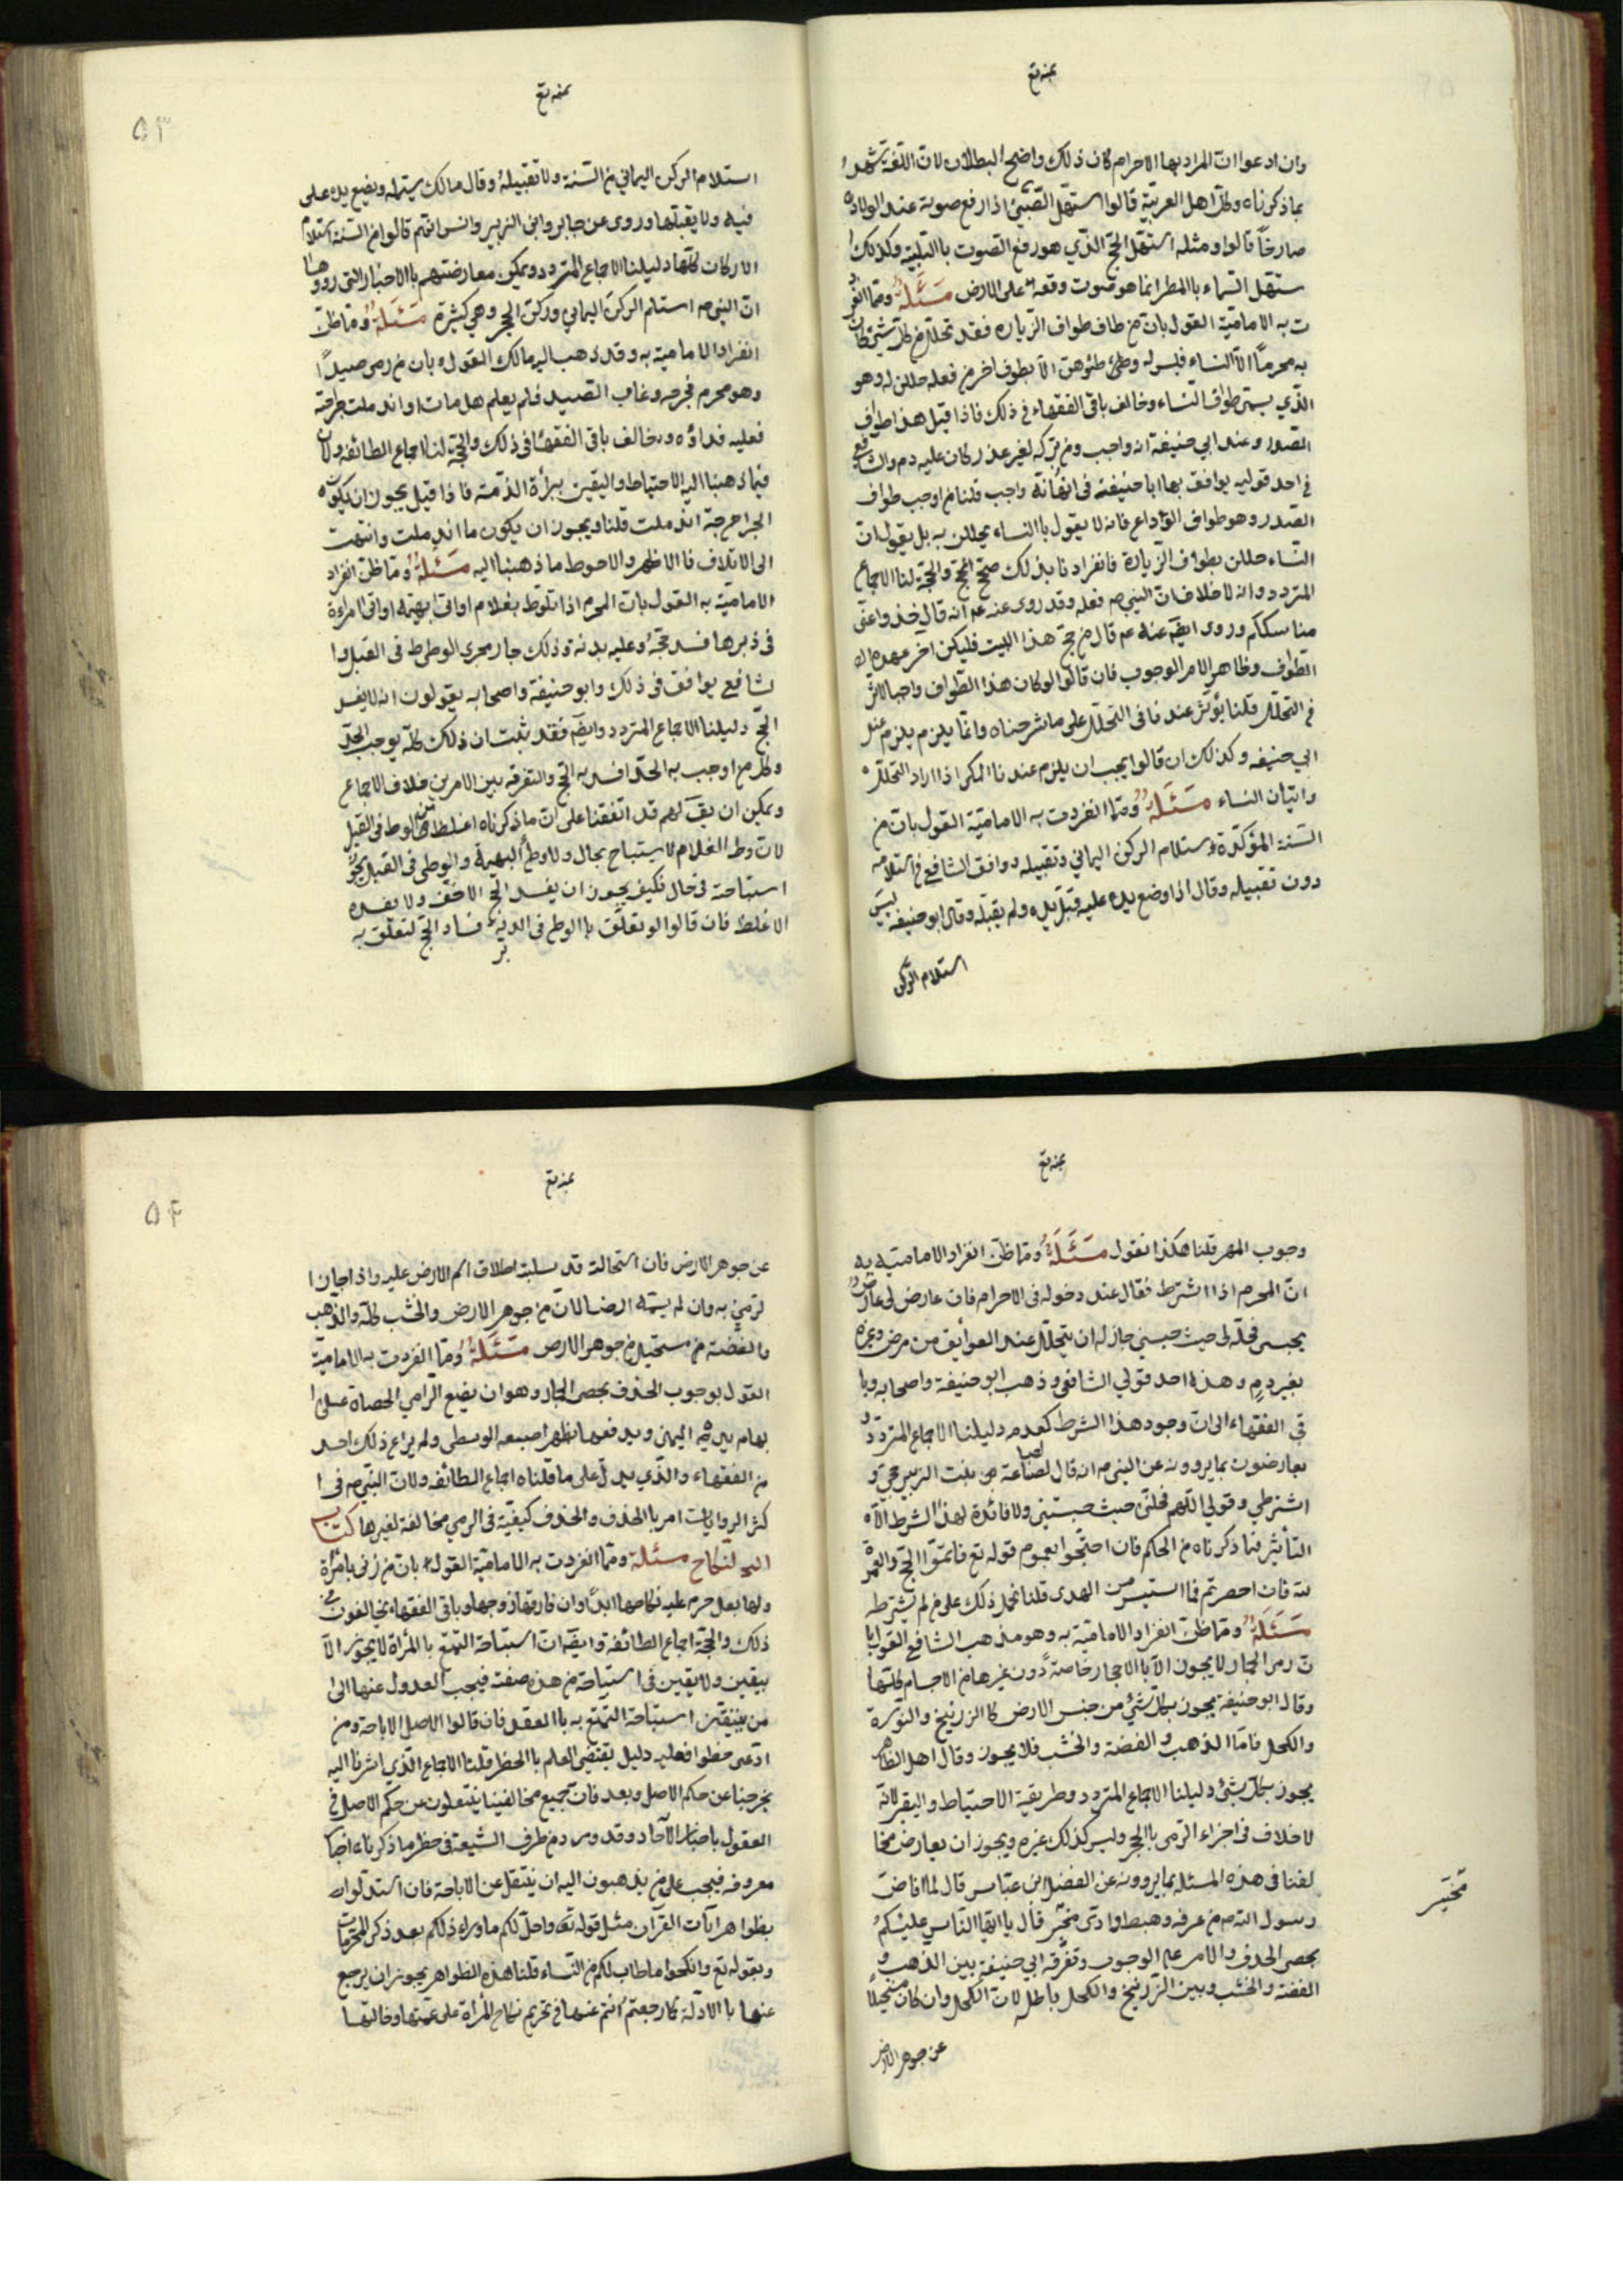 بمنه تع
وان ادعوا ان المراد بها الاحرام كان ذلك واضح البطلان لان اللغة تشهد
بما ذكرناه وكل اهل العربية قالوا استهل الصبي اذا رفع صوته عند الولادة
صارخا قالوا ومثله استهل الحج الذي هو رفع الصوت باالتلبية وكذلك ا
ستهل السماء باالمطر انما هو صوت وقعه على الارض مسئلة ومما انفر
ت به الامامية القول بان من طاف طواف الزيارة فقد تحلل من كل شيء كان
به محرما الا النساء فليس له وطئ الا بطوف اخر من فعله حللن له وهو
الذي يسمى طواف النساء وخالف باقي الفقهاء في ذلك فاذا قيل هذا طواف
الصدر وعند ابي حنيفة انه واجب ومن تركه لغير عذر كان عليه دم والشافع
في احد قوليه يوافق بها ابا حنيفة في انه واجب قلنا من اوجب طواف
الصدر وهو طواف الوداع فانه لا يقول باالنساء يحللن به بل يقول ان
النساء حللن بطواف الزيارة فانفرادنا بذلك صحيح والحجة لنا الاجماع
المتردد وانه لا خلاف ان النبي ص فعله وقد روى عنه عم انه قال خذوا عني
مناسككم وروى ايضا عنه عم قال من حج هذا البيت فليكن اخر عهده
الطواف وظاهر الامر الوجوب فان قالوا لو كان هذا الطواف واجبا لاثر
في التحلل قلنا يؤثر عندنا في التحلل على ما شرحناه وانما يلزم يلزم عند
ابي حنيفه وكذلك ان قالوا يجب ان يلزم عندنا المكي اذا اراد التحلل
واتيان النساء مسئلة ومما انفردت به الامامية القول بان من
السنة المؤكدة استلام الركن اليماني وتقبيله ووافق الشافع في استلامه
دون تقبيله وقال اذا وضع يده عليه قبل يده ولم يقبله وقال ابو حنيفه ليس
استلام الركن
بمنه تع
٥٣
استلام الركن اليماني من السنة ولا تقبيله وقال مالك يستلمه ويضع يده على
فيه ولا يقبلها وروى عن جابر وابن الزبير وانس انهم قالوا من السنة استلام
الاركان كلها دليلنا الاجماع المتردد ويمكن معارضتهم باالاخبار التي رووها
ان النبي ص استلم الركن اليماني وركن الحجر وهي كثيرة مسئلة ومما ظن
انفراد الامامية به وقد ذهب اليه مالك القول بان من رمى صيدا
وهو محرم فجرحه وغاب الصيد فلم يعلم هل مات او اندملت جراحته
فعليه فداؤه وخالف باقي الفقهاء في ذلك والحجة لنا اجماع الطائفه ولان
فيما ذهبنا اليه الاحتياط واليقين ببرأة الذمة فاذا قيل يجوز ان يكون
الجراحة اندملت قلنا ويجوز ان يكون ما اندملت وانتهت
الى الاتلاف فاالاظهر والاحوط ما ذهبنا اليه مسئلة ومما ظن انفراد
الامامية به القول بان المحرم اذا تلوط بغلام او اتى بهيمة او اتى امراءة
في دبرها فسد حجه وعليه بدنة وذلك جار مجرى الوطى في القبل وا
لشافع يوافق في ذلك وابو حنيفة واصحابه يقولون انه لا يفسد
الحج دليلنا الاجماع المتردد وايضا فقد ثبت ان ذلك كله يوجب الحد
وكل من اوجب به الحد افسد به الحج والتفرقة بين الامرين خلاف الاجماع
ويمكن ان يق لهم قد اتفقنا على ان ما ذكرناه اغلظ من الوطى في القبل
لان وطى الغلام لا يستباح بحال ولا وطى البهيمة والوطى في القبل يجوز
استباحته في حال فكيف يجوز ان يفسد الحج الاخف ولا يفسده
الاغلظ فان قالوا لو تعلق باالوطى في الدبر فساد الحج لتعلق به
بمنه تع
وجوب المهر قلنا هكذا نقول مسئلة ومما ظن انفراد الامامية به
ان المحرم اذا اشترط فقال عند دخوله في الاحرام فان عارض لي عارض
يحبسني فحلني حيث حبسني جاز له ان يتحلل عند العوائق من مرض وغيره
بغير دم وهذا احد قولي الشافعي وذهب ابو حنيفة واصحابه وبا
قي الفقهاء الى ان وجود هذا الشرط كعدمه دليلنا الاجماع المتردد و
يعارضون بما يروونه عن النبي ص انه قال لضباعة بنت الزبير حجي و
اشترطي وقولي اللهم فحلني حيث حبستني ولا فائدة لهذا الشرط الا
التأثير فيما ذكرناه من الحكم فان احتجوا بعموم قوله تع فاتموا الحج والعمرة
لله فان احصرتم فما استيسر من الهدي قلنا نحمل ذلك على من لم يشترط
مسئلة ومما ظن انفراد الامامية به وهو مذهب الشافع القول با
ن رمى الجمار لا يجوز الا باالاحجار خاصة دون غيرها من الاجسام كلها
وقال ابو حنيفة يجوز بكل شئ من جنس الارض كاالزرنيخ والنورة
والكحل فاما الذهب والفضة والخشب فلا يجوز وقال اهل الظاهر
يجوز بكل شئ دليلنا الاجماع المتردد وطريقة الاحتياط واليقين لانه
لا خلاف في اجزاء الرمى باالحجر وليس كذلك غيره ويجوز ان يعارض مخا
لفنا في هذه المسئلة بما يروونه عن الفضل ابن عباس قال لما افاض
رسول الله ص من عرفه وهبط وادى محسر قال يا ايها الناس عليكم
بحصى الخذف والامر على الوجوب وتفرقة ابي حنيفة بين الذهب و
الفضة والخشب وبين الزرنيخ والكحل باطل لان الكحل وان كان مستحيلا
عن جوهر الارض
محسر
بمنه تع
٥٤
عن جوهر الارض فان استحالته قد سلبته اطلاق اسم الارض عليه واذا جاز ا
لرمى به وان لم يسم ارضا لان من جوهر الارض والخشب كله والذهب
والفضة من مستحيل من جوهر الارض مسئلة ومما انفردت به الامامية
القول بوجوب الخذف بحصى الجمار وهو ان يضع الرامي الحصاة على ا
بهام يده اليمنى ويدفعها بظهر اصبعه الوسطى ولم يراع ذلك احد
من الفقهاء والذي يدل على ما قلناه اجماع الطائفه ولان النبي ص في ا
كثر الروايات امر باالخذف والخذف كيفية في الرمي مخالفة لغيرها كتاب
النكاح مسئلة ومما انفردت به الامامية القول بان من زنى بامرأة
ولها بعل حرم عليه نكاحها ابدا وان فارقها زوجها وباقي الفقهاء يخالفون في
ذلك والحجة اجماع الطائفة وايضا ان استباحة التمتع باالمرأة لا يجوز الا
بيقين ولا يقين في استباحة من هذه صفته فيجب العدول عنها الى
من يتيقن استباحة التمتع به باالعقد فان قالوا الاصل الاباحة ومن
ادعى حظرا فعليه دليل يقتضي العلم باالحظر قلنا الاجماع الذي اشرنا اليه
يخرجنا عن حكم الاصل وبعد فان جميع مخالفينا ينتقلون عن حكم الاصل في
العقول باخبار الآحاد وقد ورد من طرف الشيعة في حظر ما ذكرناه اخبا
معروفه فيجب على من يذهبون اليه ان ينتقل عن الاباحة فان استدلوا
بظواهر آيات القرآن مثل قوله تع واحل لكم ماوراء ذلكم بعد ذكر المحرمات
وبقوله تع وانكحوا ما طاب لكم من النساء قلنا هذه الظواهر يجوز ان يرجع
عنها باالادلة كما رجعتم انتم عنها في تحريم نكاح المرأة على عمتها وخالتها